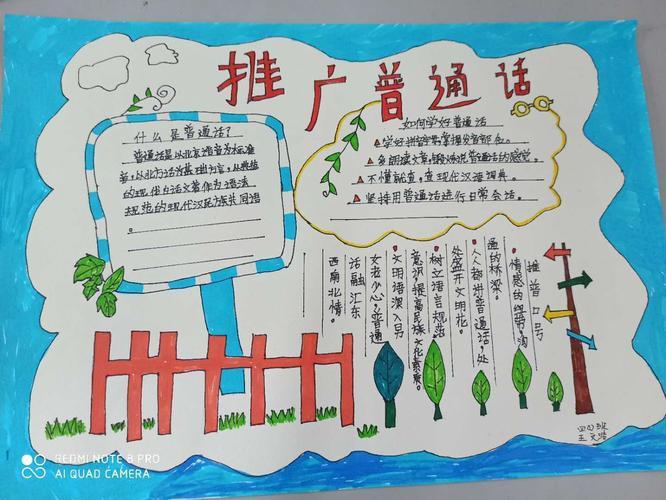 推广普通话
什么是普通话?
普通话是以北京语音为标准
音,以北方话为基础方言,以典范
的现代白话文著作为语法
规范的现代汉民族共同语
。
如何学好普通话
▲学好拼音,掌握发音部位。
▲多朗读文章,锻炼说普通话的感觉。
▲不懂就查,查现代汉语词典。
▲坚持用普通话进行日常会话。
推普口号
·情感的纽带,沟
通的桥梁。
·人人都讲普通话,处
处盛开文明花。
·树立语言规范
意识,提高民族文化素质。
·文明语深入男
女老少心,普通
话融汇东
西南北情。
REDMI NOTE 8 PRO
AI QUAD CAMERA